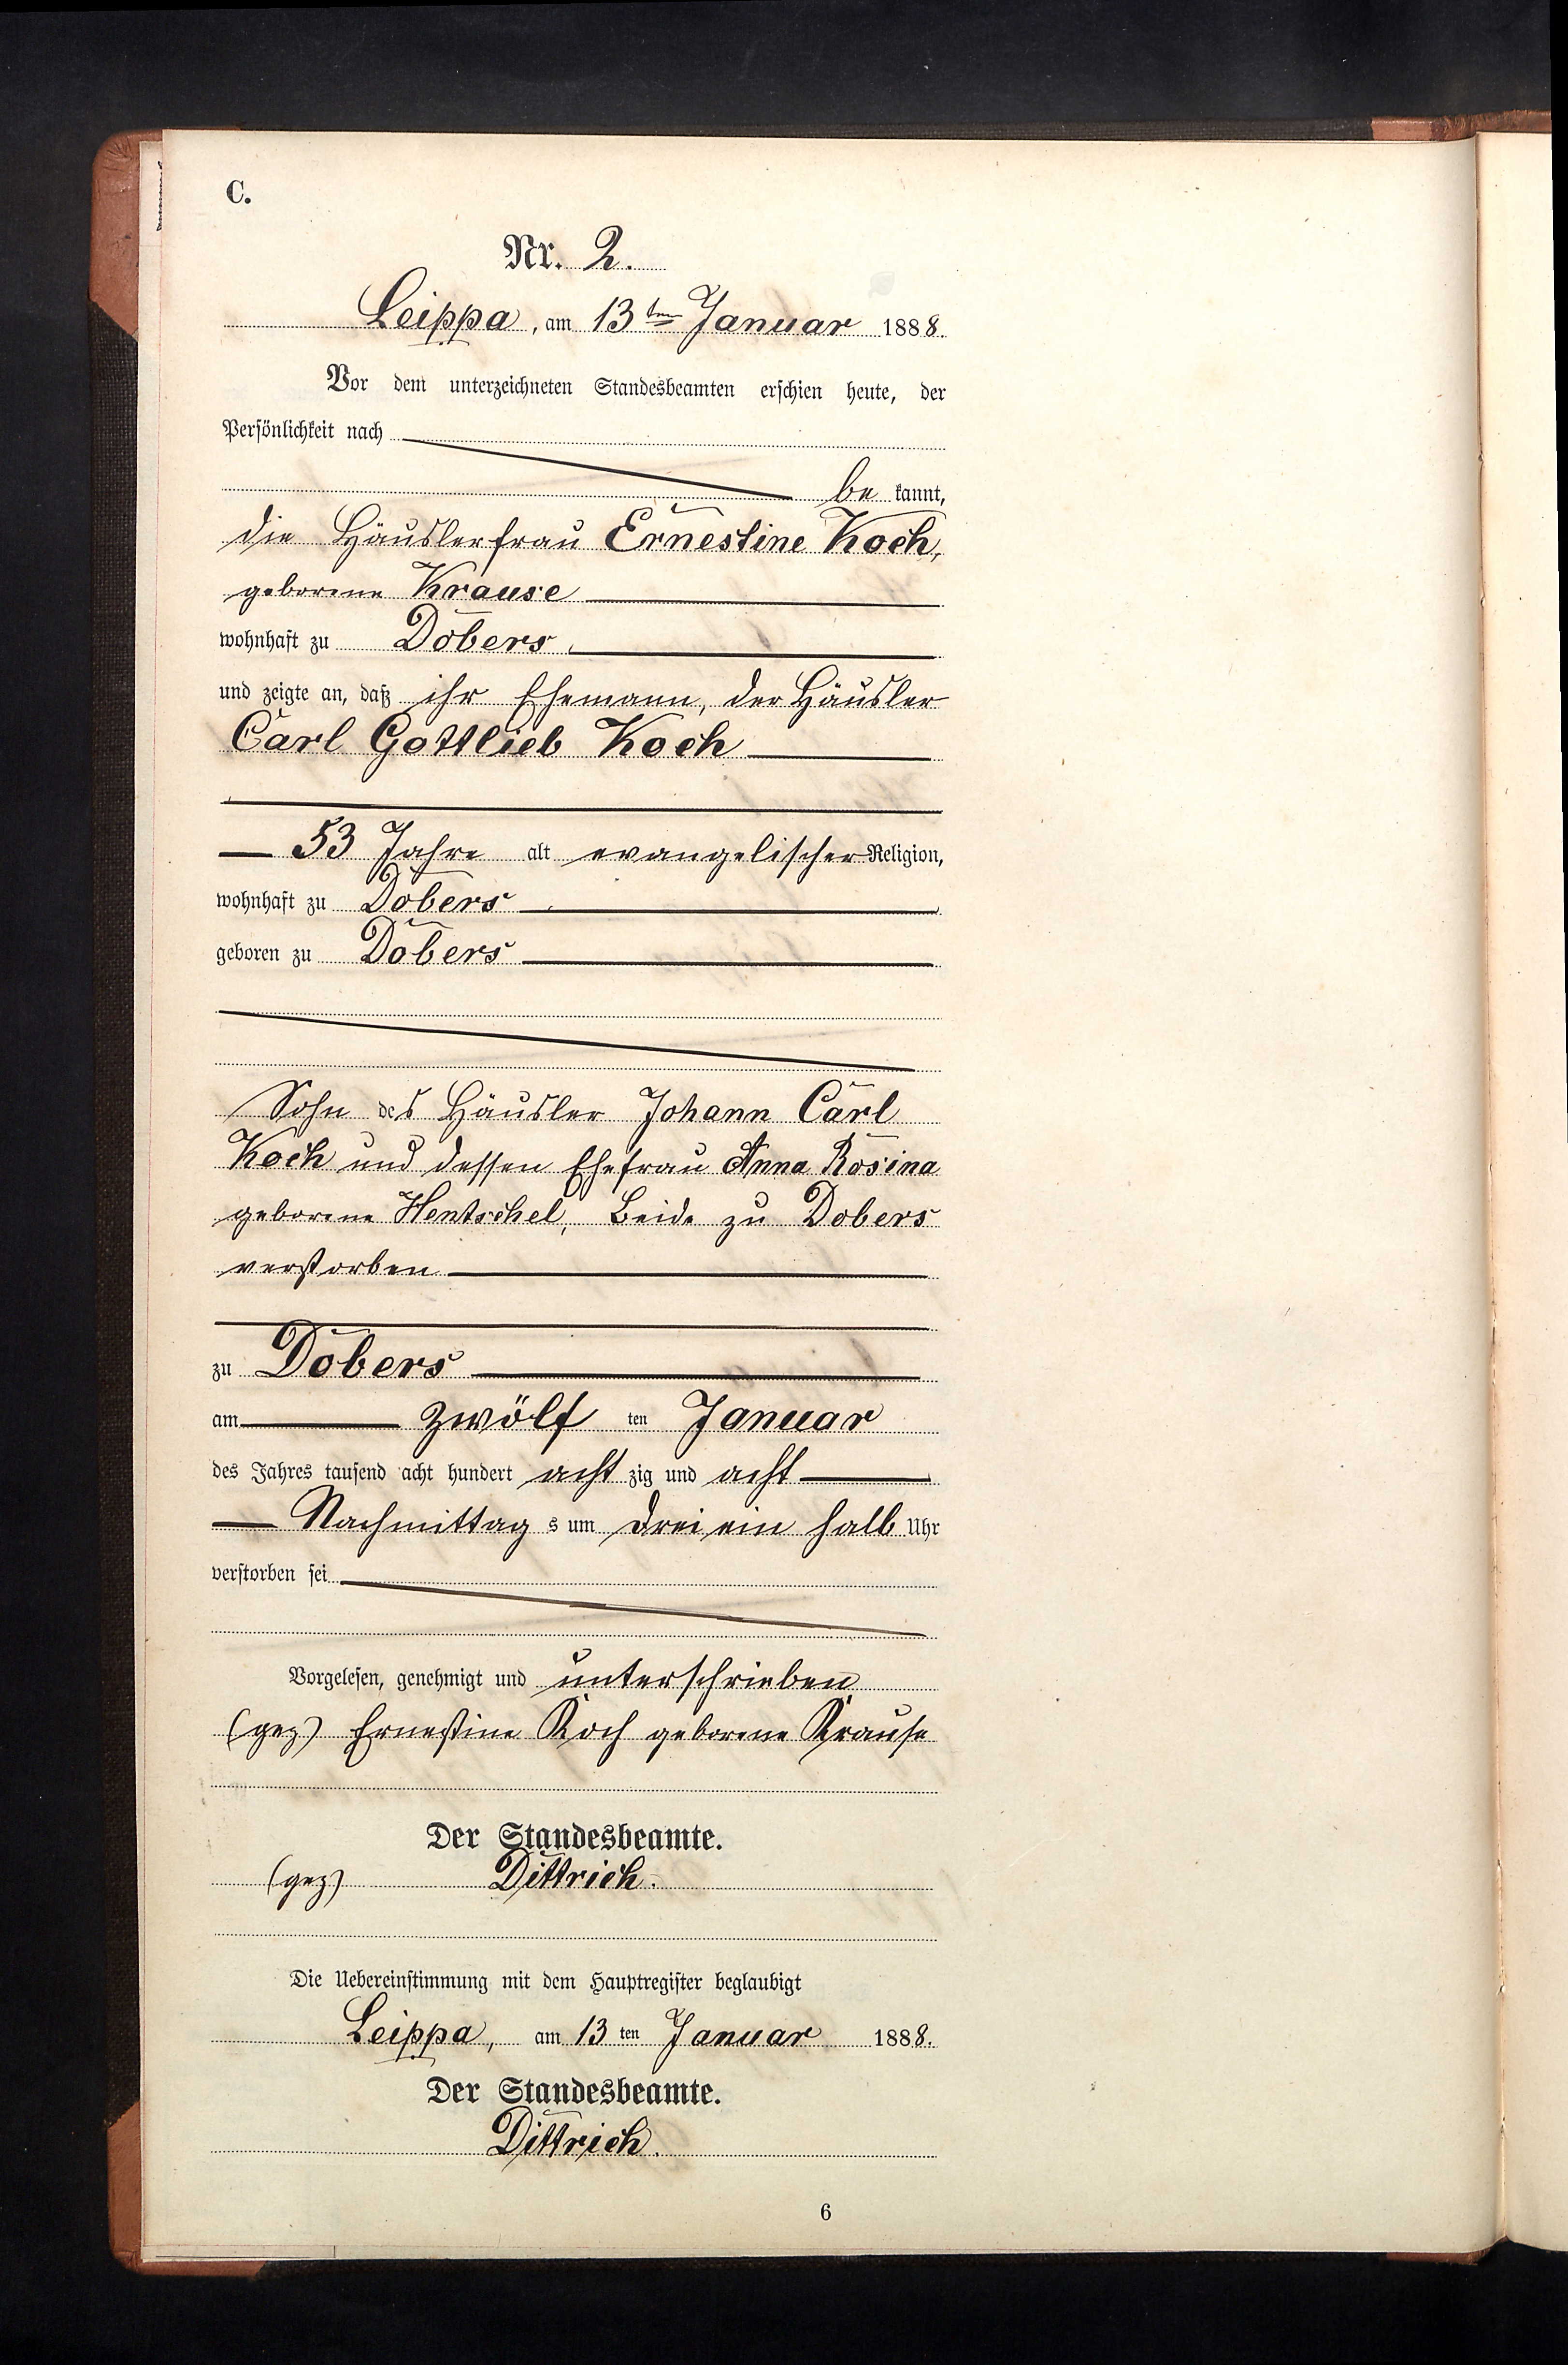 C.
Nr. 2.
Leippa, am 13ten Januar 1888.
Vor dem unterzeichneten Standesbeamten erschien heute, der
Persönlichkeit nach
be kannt,
die Häuslerfrau Ernestine Koch,
geborene Krause
wohnhaft zu Dobers
und zeigte an, daß ihr Ehemann, der Häusler
Carl Gottlieb Koch
53 Jahre alt evangelischer Religion,
wohnhaft zu Dobers
geboren zu Dobers
Sohn des Häusler Johann Carl
Koch und dessen Ehefrau Anna Rosina
geborene Hentschel, Beide zu Dobers
verstorben
zu Dobers
am zwölf ten Januar
des Jahres tausend acht hundert acht zig und acht
Nachmittag s um drei ein halb Uhr
verstorben sei
Vorgelesen, genehmigt und unterschrieben
(gez) Ernestine Koch geborene Krause
Der Standesbeamte.
(gez) Dittrich.
Die Uebereinstimmung mit dem Hauptregister beglaubigt
Leippa, am 13 ten Januar 1888.
Der Standesbeamte.
Dittrich.
6